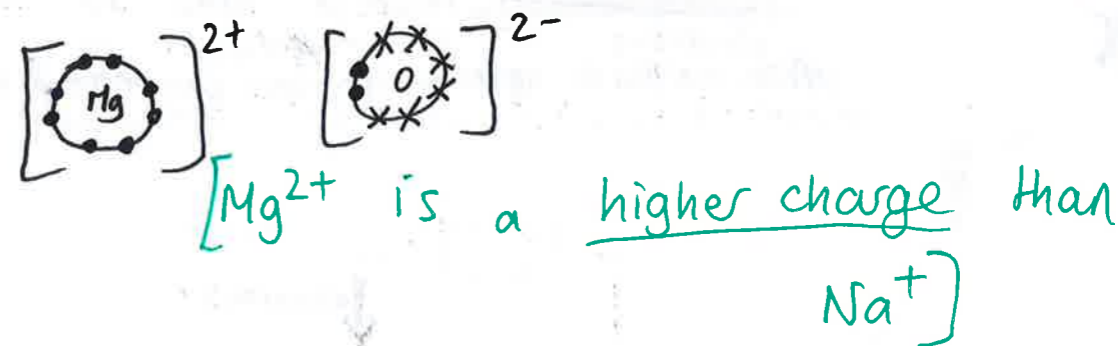 [Mg]2+ [O]2-
[Mg2+ is a higher charge than
Na+]